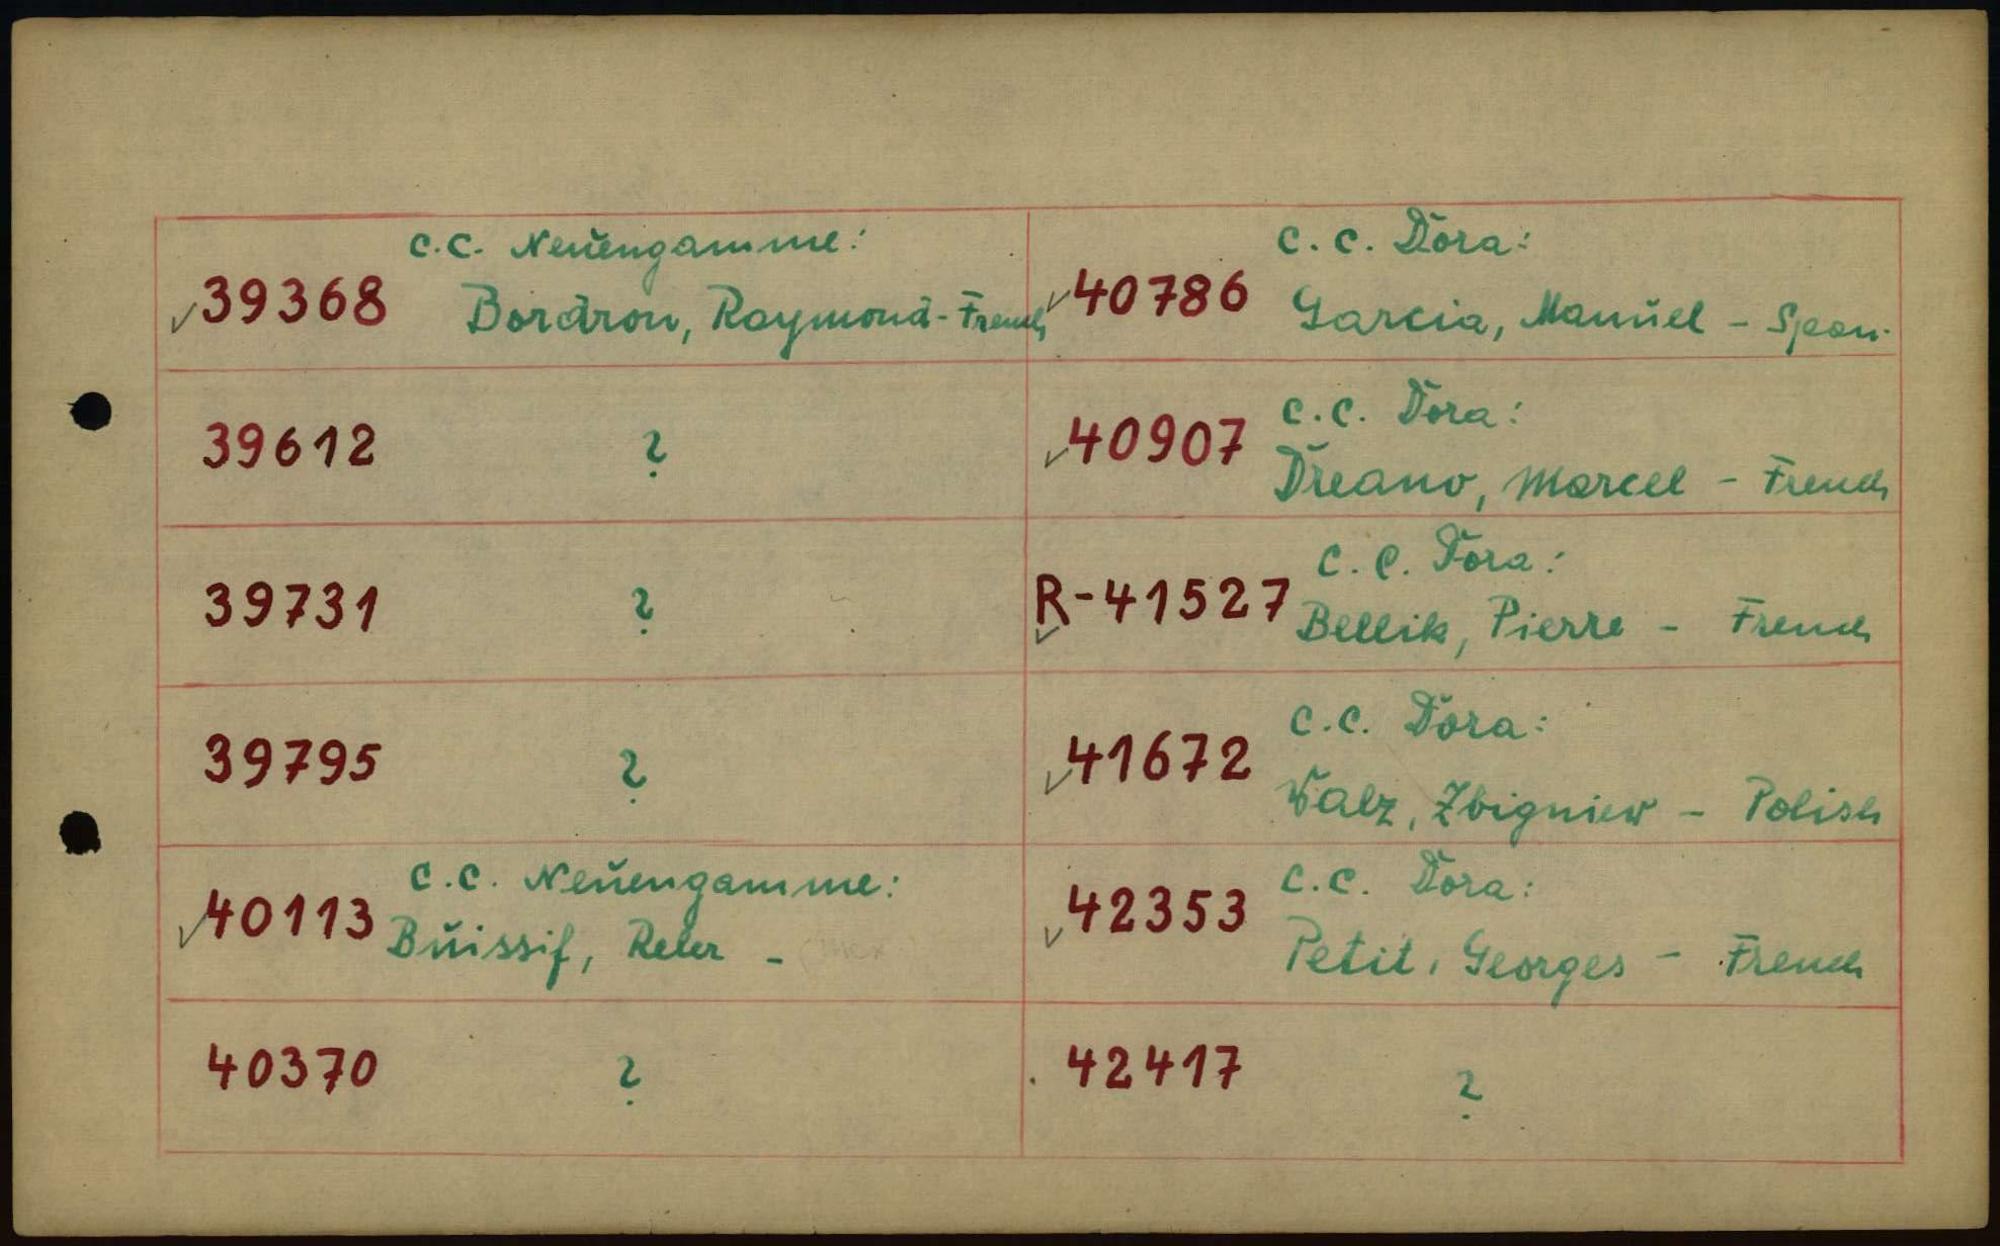 C.C. Neuengamme:
✓39368 Bordron, Raymond - French
39612 ?
39731 ?
39795 ?
C.C. Neuengamme:
✓40113 Buissif, Reler -
40370 ?
C.C. Dora:
✓40786 Garcia, Manuel - Span.
C.C. Dora:
✓40907 Dreano, Marcel - French
C.C. Dora:
✓R-41527 Bellik, Pierre - French
C.C. Dora:
✓41672 Walz, Zbigniew - Polish
C.C. Dora:
✓42353 Petit, Georges - French
42417 ?